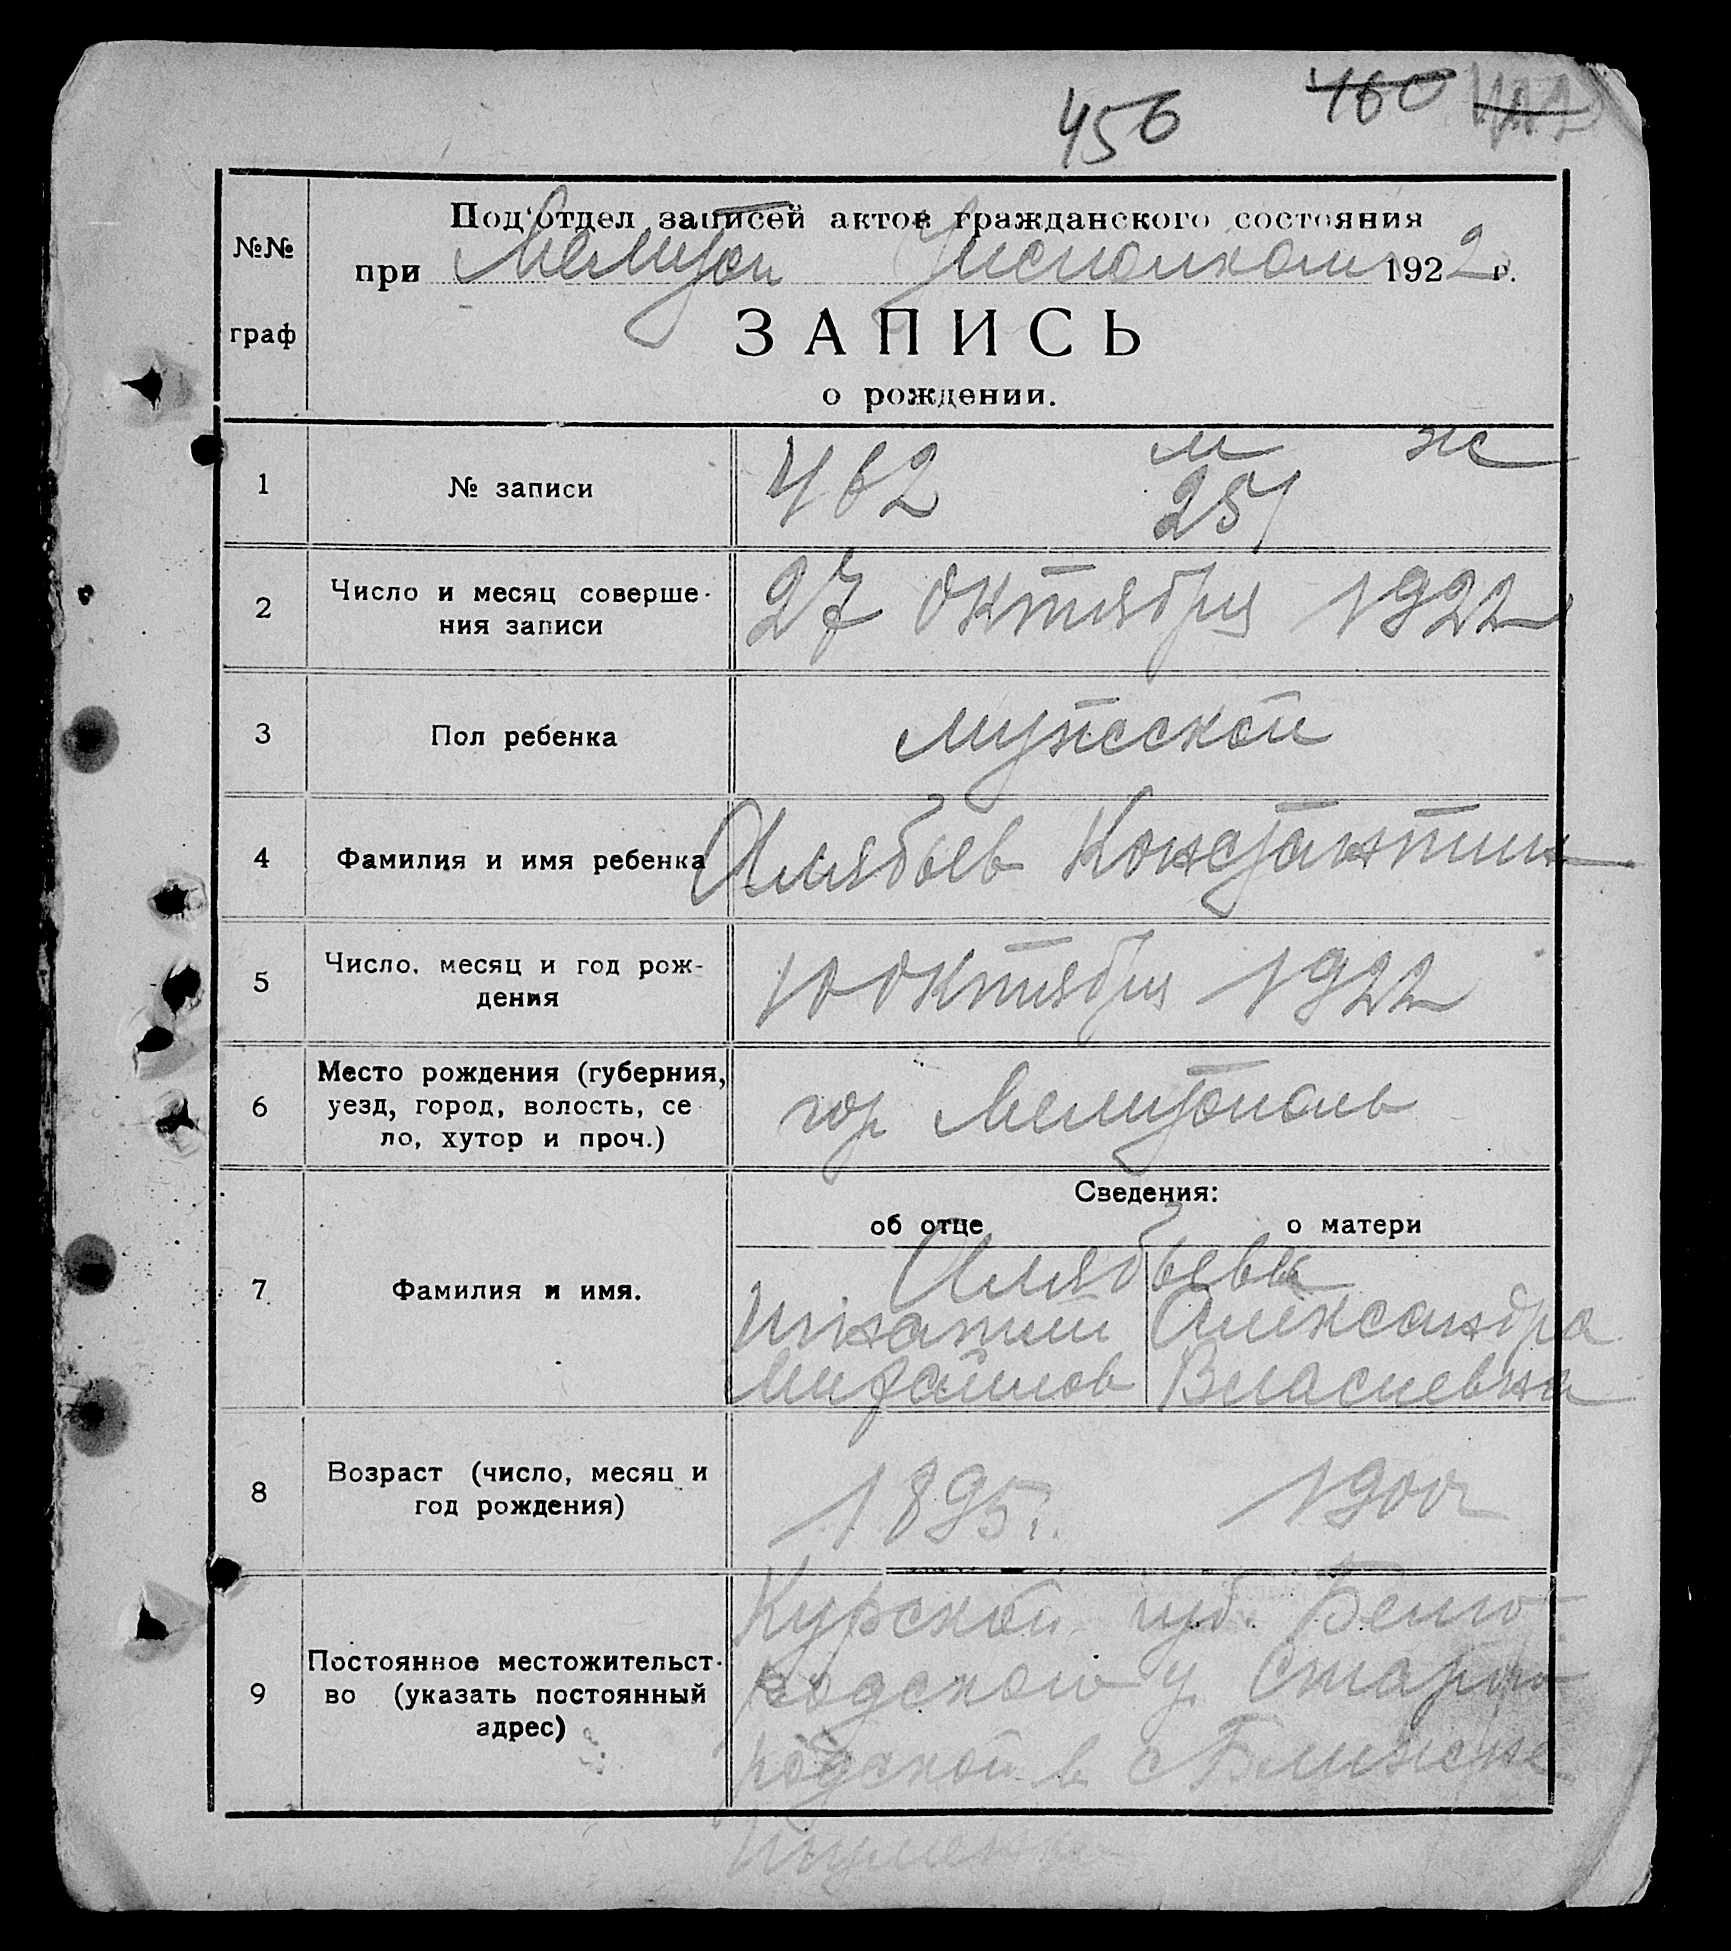 456 460
Под'отдел записей актов гражданского состояния
№№ граф
при Мелитоп Уисполкоме 1922 г.
ЗАПИСЬ
о рождении.
м ж
1 № записи 462 251
2 Число и месяц соверше-
ния записи
27 октября 1922
3 Пол ребенка мужской
4 Фамилия и имя ребенка Алябьев Константин
5 Число, месяц и год рож-
дения
10 октября 1922
6 Место рождения (губерния,
уезд, город, волость, се
ло, хутор и проч.)
гор Мелитополь
Сведения:
об отце о матери
7 Фамилия и имя.
Алябьевы
Игнатий Александра
Михайлов Власиевна
8 Возраст (число, месяц и
год рождения)
1895г. 1900г
9 Постоянное местожительст-
во (указать постоянный
адрес)
Курской губ. Белго-
родского у Старого
родской в с Ближне
Игуменка